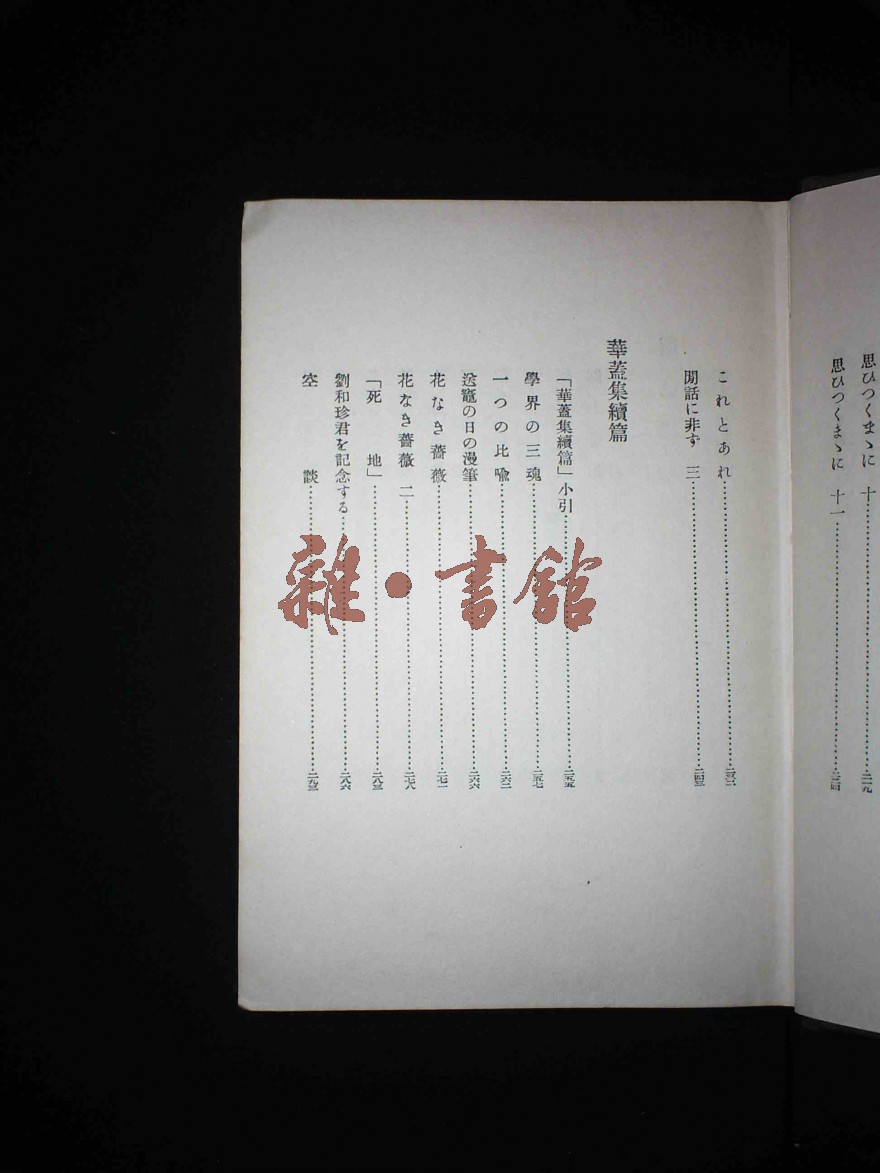 思ひつくまゝに 十……二一九
思ひつくまゝに 十一……二二四
これとあれ……二三二
閒話に非ず 三……二四三
華蓋集續篇
「華蓋集續篇」小引……二五五
學界の三魂……二五七
一つの比喩……二六二
送竈の日の漫筆……二六六
花なき薔薇……二七一
花なき薔薇 二……二七八
「死地」……二八三
劉和珍君を記念する……二八六
空談……二九三
雜·書館